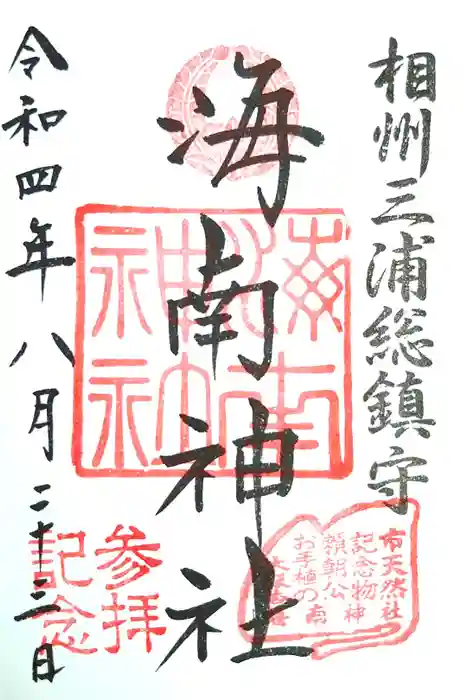 相州三浦総鎮守
海南神社
令和四年八月二十三日
参拝
記念
市天然
記念物
頼朝公
お手植の
社
神
南